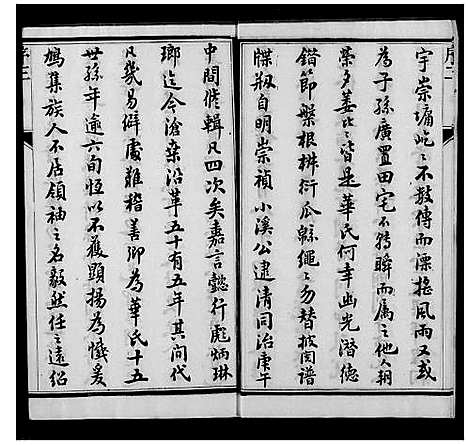 宇崇墉屹〻不数傳而漂搖風雨又或
為子孫廣置田宅不轉瞬而屬之他人朝
榮夕萎比〻皆是華氏何幸幽光潛德
錯節盤根椒衍瓜緜繩〻勿替披閲譜
牒剏自明崇禎小溪公逮清同治庚午
序二
中間修輯凡四次矣嘉言懿行彪炳琳
瑯迄今滄桑沿革五十有五年其间代
凡幾易僻處難稽善卿為華氏十五
世孫年逾六旬恆以不獲顯揚為懺爰
鳩集族人不居領袖之名毅然任之遠紹
序三